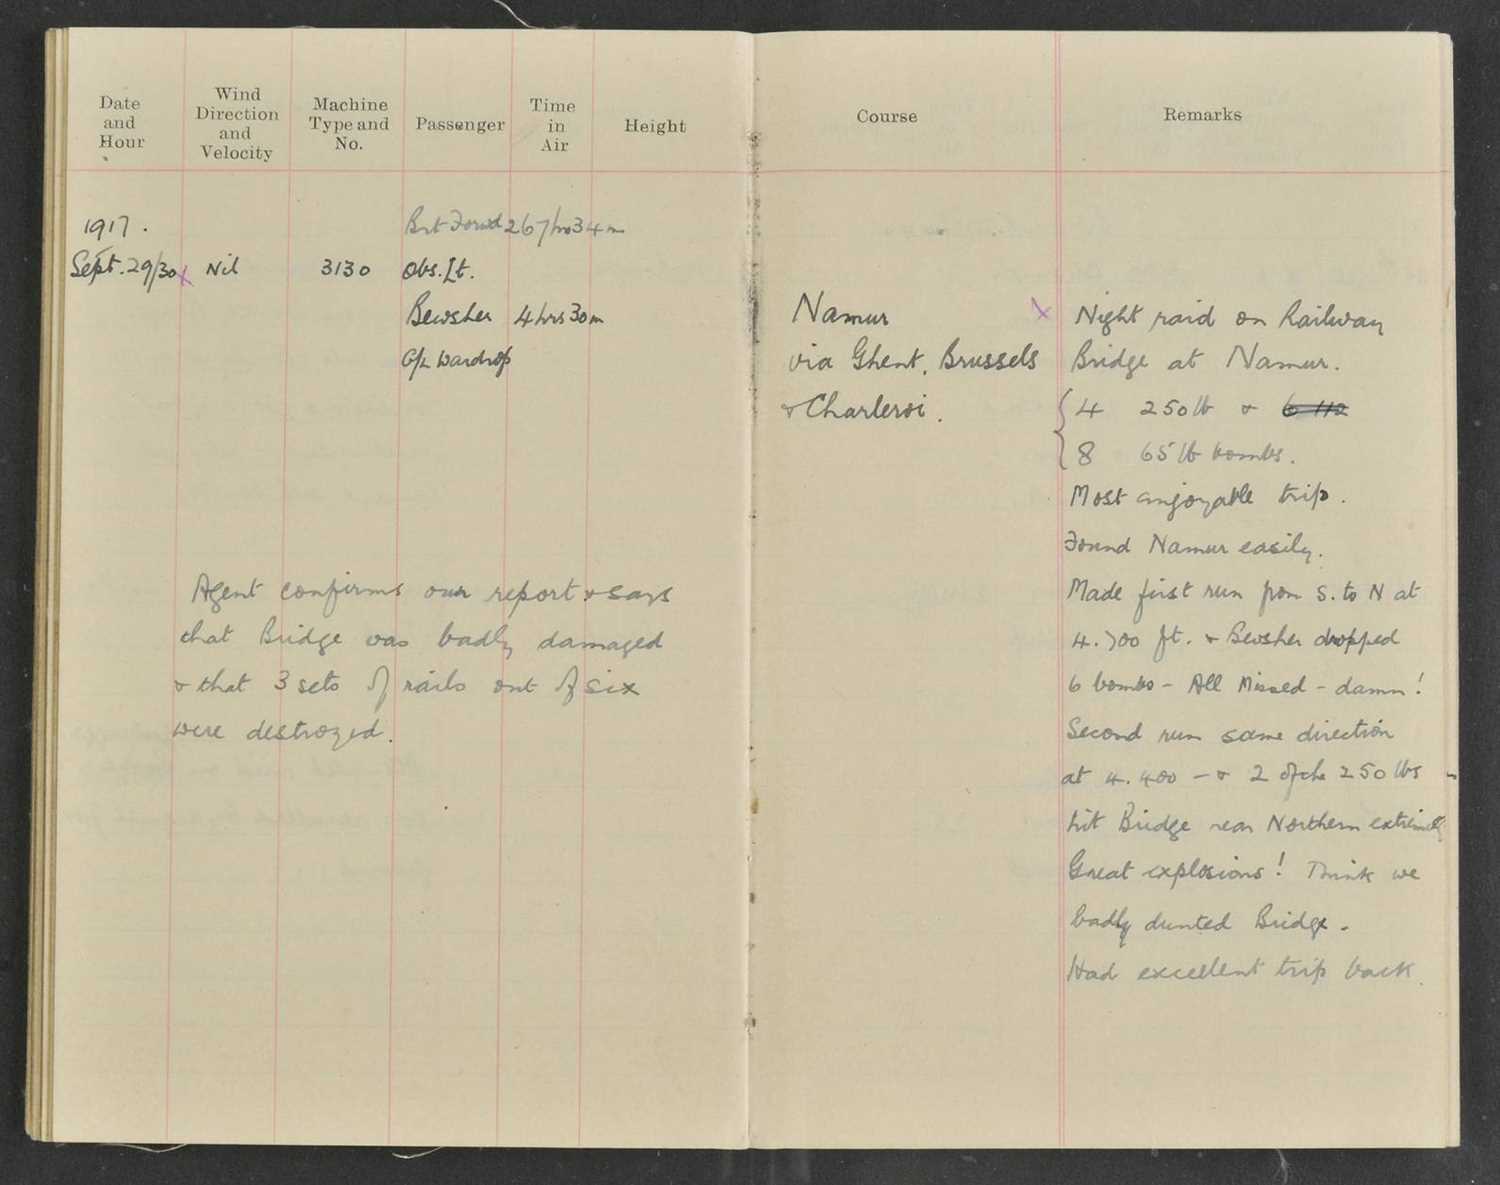 Date and Hour
Wind Direction and Velocity
Machine Type and No.
Passenger
Time in Air
Height
1917.
Brt Forwd 267hrs34m
Sept. 29/30 x Nil 3130 Obs. Lt.
Bewsher 4hrs30m
G/L Wardrop
Agent confirms our report & says
that Bridge was badly damaged
& that 3 sets of rails out of six
were destroyed.
Course
Remarks
Namur
via Ghent, Brussels
& Charleroi.
x Night raid on Railway
Bridge at Namur.
4 250lb & 6 112
8 65lb bombs.
Most enjoyable trip.
Found Namur easily.
Made first run from S. to N at
4.700 ft. & Bewsher dropped
6 bombs - All Missed - damn!
Second run same direction
at 4.400 - & 2 of the 250lbs
hit Bridge near Northern extremity
Great explosions! Think we
badly dunted Bridge.
Had excellent trip back.